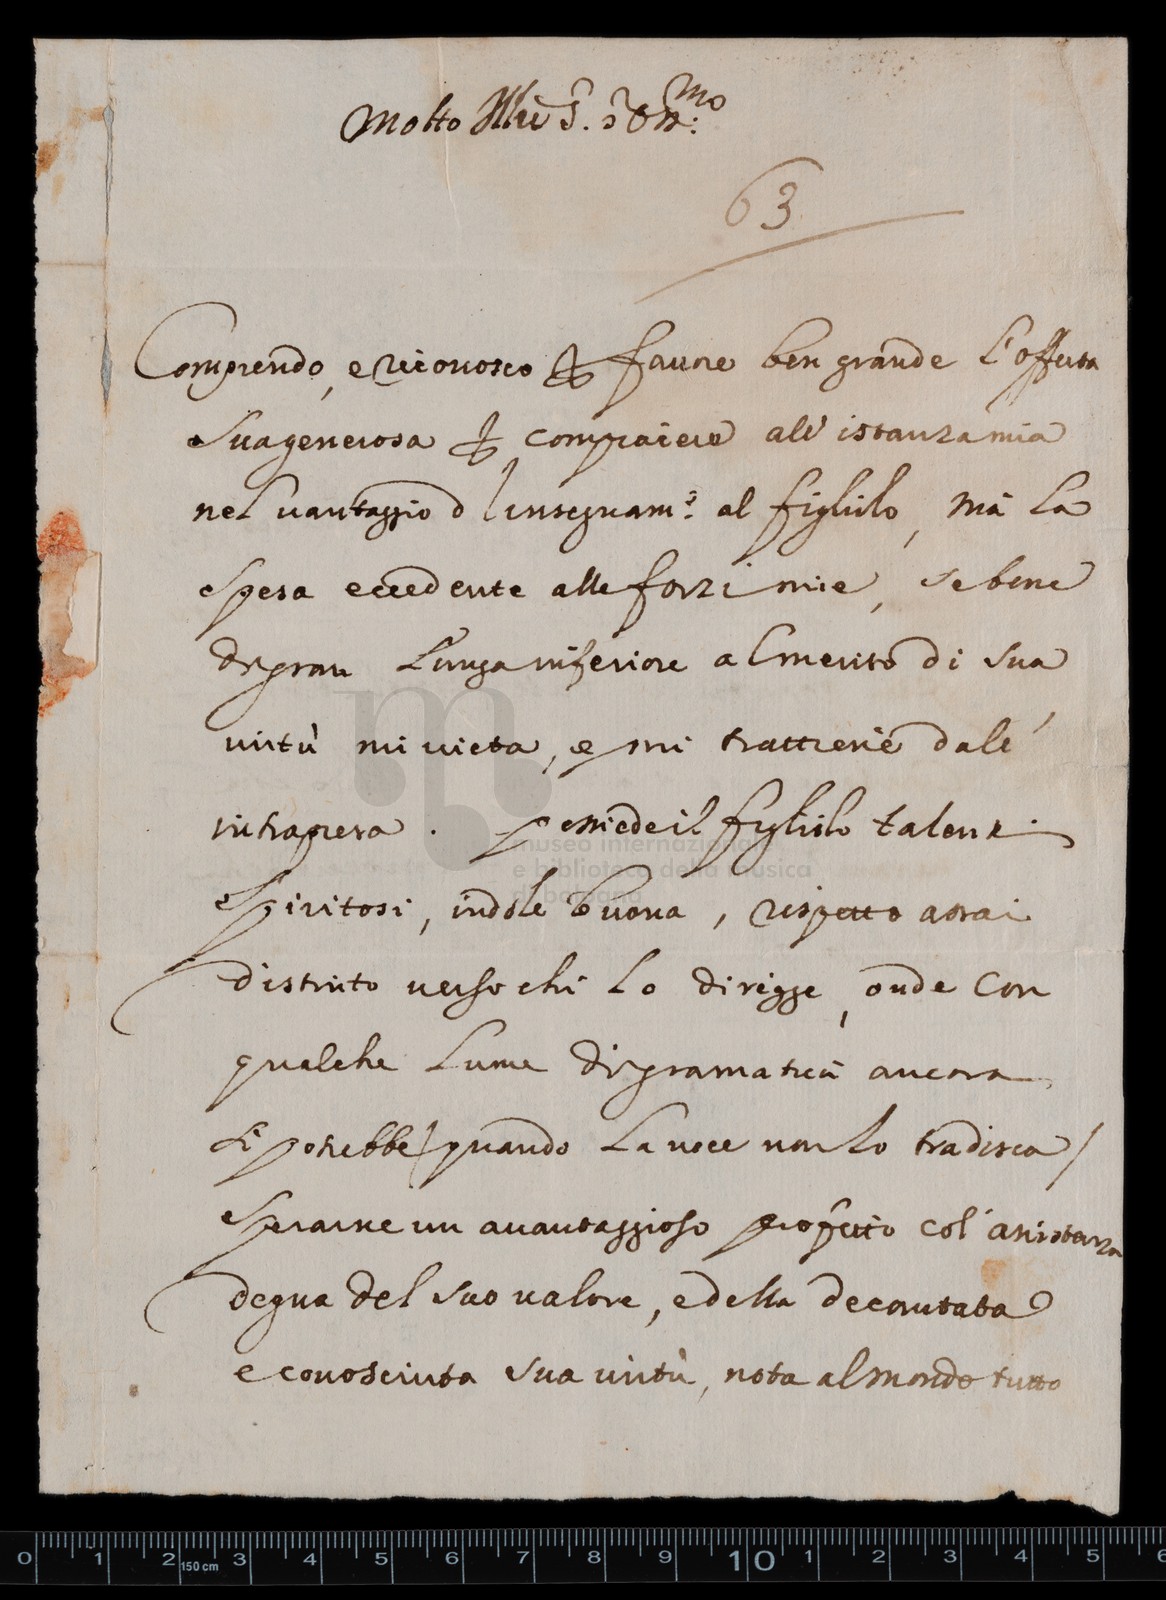 Molto Ill.re S.r
63
Comprendo, e riconosco per favore ben grande l'offerta
sua generosa per compiacere all' istanza mia
nel vantaggio d l'insegnam.o al figliulo, mà la
spesa eccedente alle forze mie, se bene
di gran lunga inferiore al merito di sua
virtù mi vieta, e mi trattiene dall'
intrapresa. possiede il figliulo talenti
spiritosi, indole buona, rispetto assai
distinto verso chi lo dirigge, onde con
qualche lume di gramatica ancora
si potrebbe / quando la voce non lo tradisca /
sperarne un avantaggioso profitto col' assistenza
degna del suo valore, e della decantata
e conosciuta sua virtù, nota al mondo tutto
museo internazionale
e biblioteca della musica
di bologna
0 1 2 3 4 5 6 7 8 9 10 1 2 3 4 5 6
150 cm